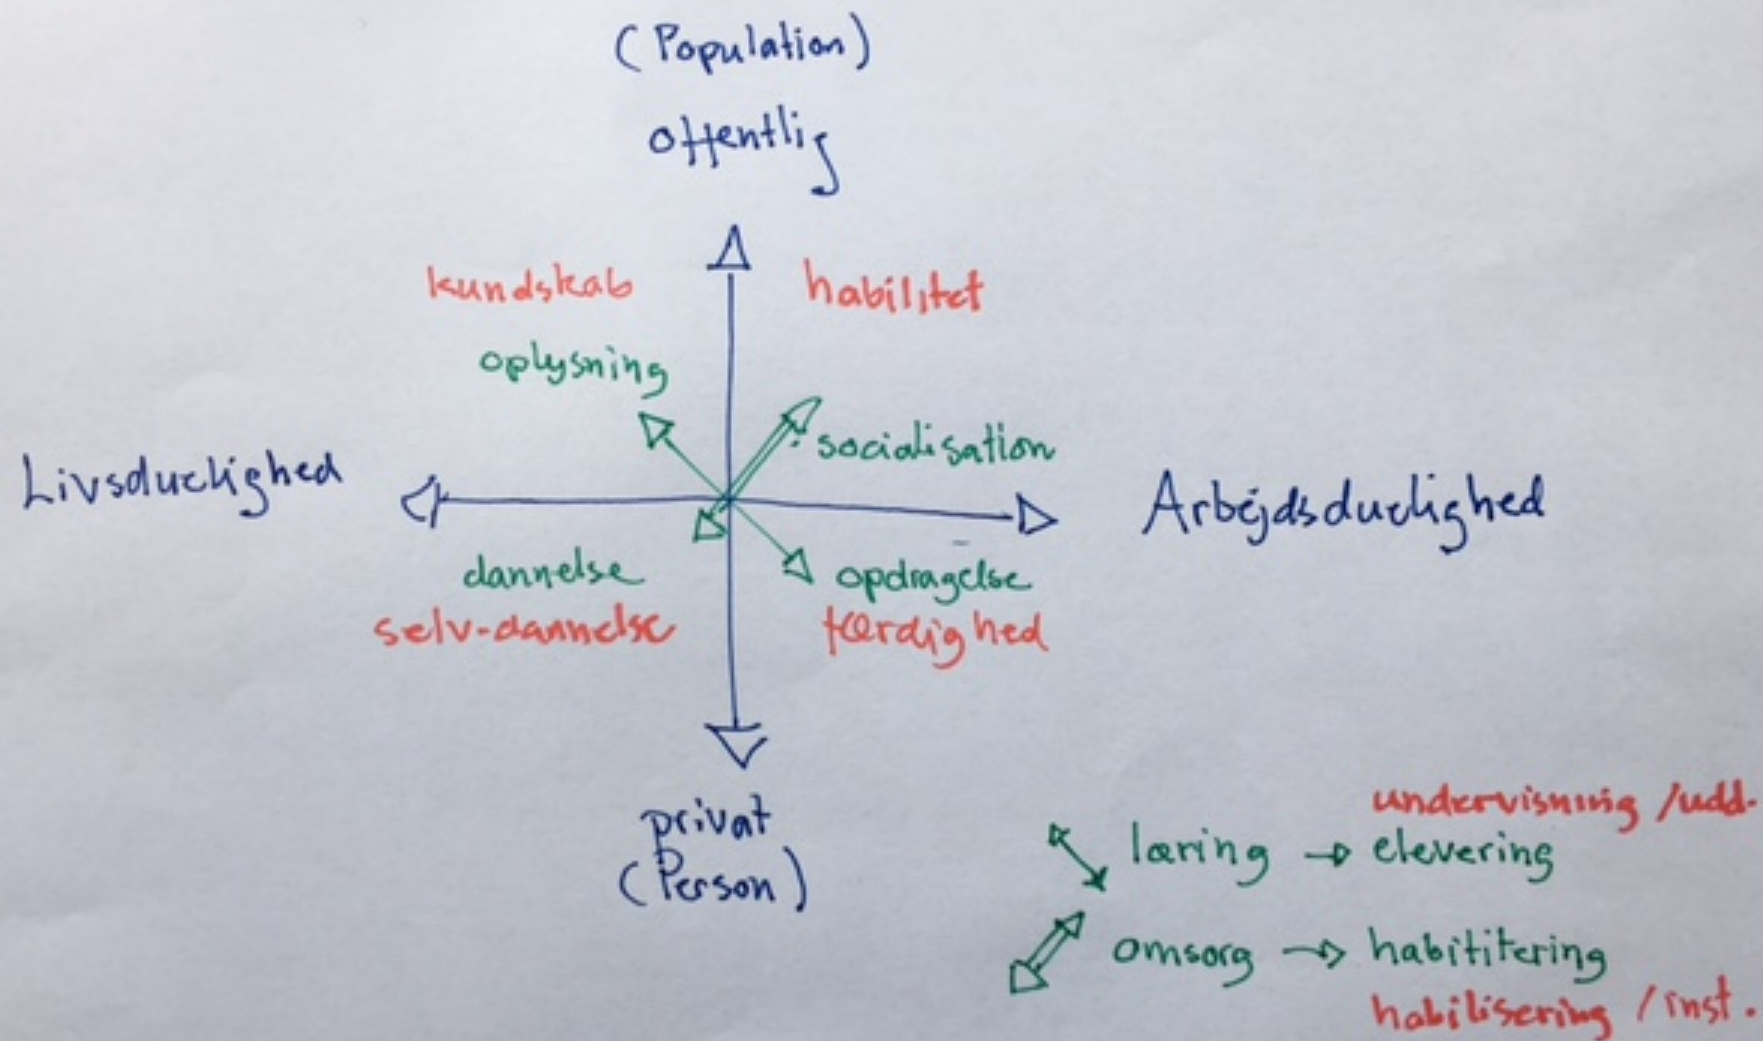 (Population)
offentlig
kundskab
habilitet
oplysning
socialisation
Livsduelighed
Arbejdsduelighed
dannelse
opdragelse
selv-dannelse
færdighed
privat
(Person)
undervisning /udd.
læring → elevering
omsorg → habititering
habilisering / inst.